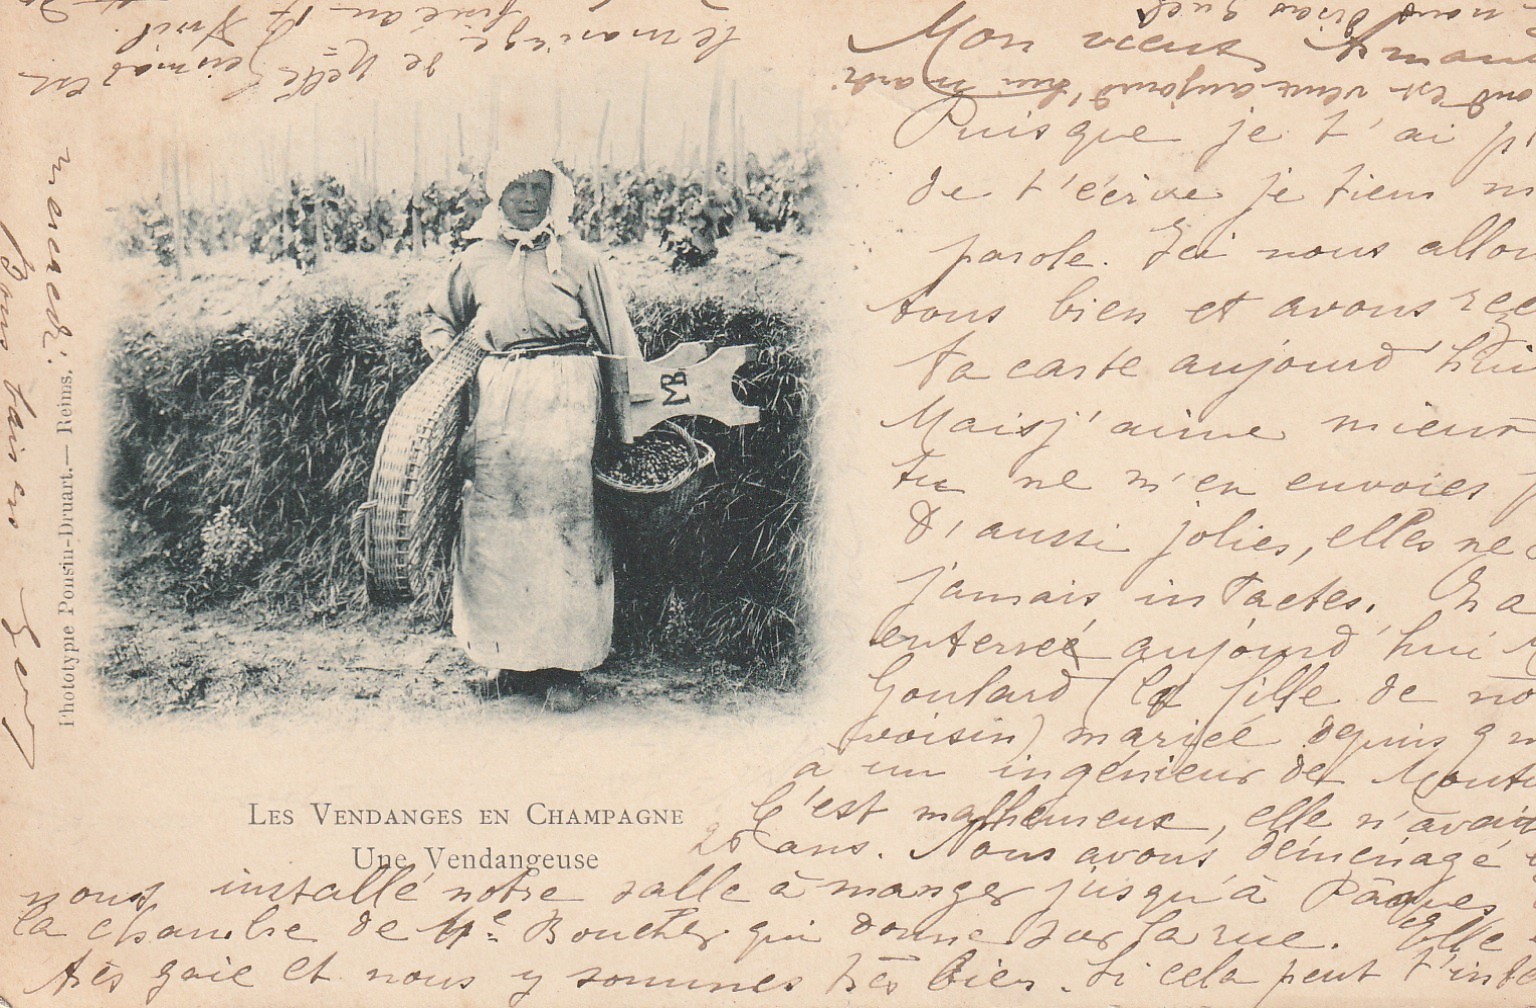 Mon vieux Armand
Puisque je t'ai p
de t'écrire je tiens m
parole. Ici nous allon
tous bien et avons reç
ta carte aujourd'hui
Mais j'aime mieux
tu ne m'en envoies p
d'aussi jolies, elles ne
jamais intactes. On a
enterreé aujourd'hui M
Goulard (la fille de no
voisin) mariée depuis 9 m
à un ingénieur de
C'est malheureux, elle n'avait
20 ans. Nous avons déménagé
nous installé notre salle à manger jusqu'à Pâques
la chambre de Mᵉ Boucher qui donne sur la rue. Elle
très gaie et nous y sommes très bien. Si cela peut t'inté
mercredi.
Bons baisers
le mariage
de Melle est
fixé au 17 Avril.
ond est venu aujourd'hui mardi
nous dirais quel
MB
Phototypie Ponsin-Druart. — Reims.
Les Vendanges en Champagne
Une Vendangeuse